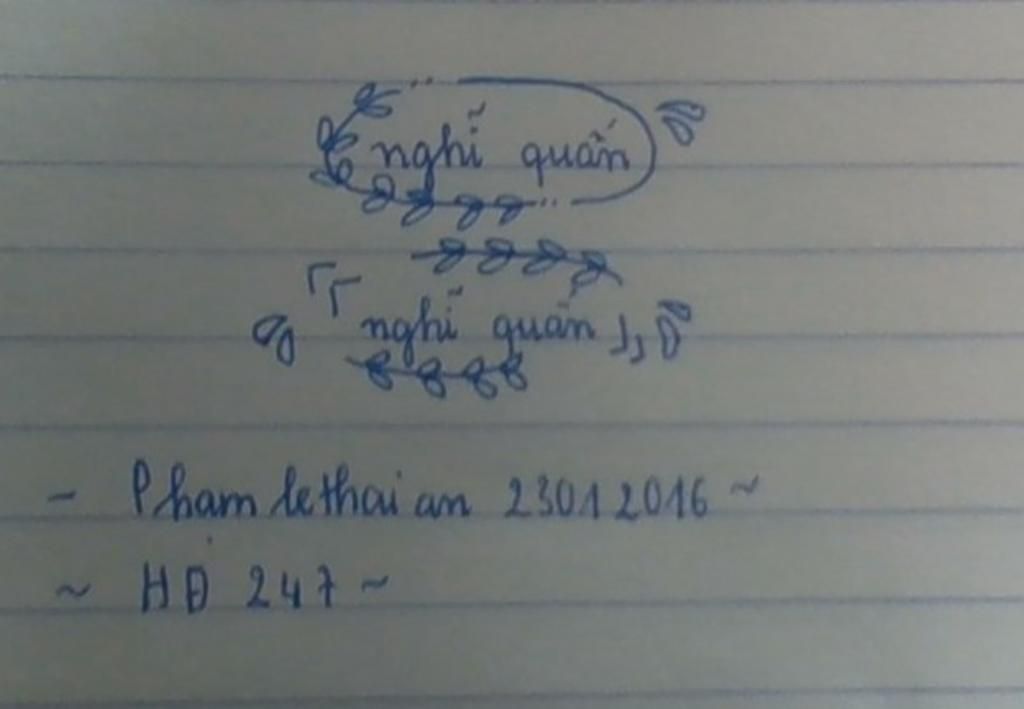 nghĩ quẩn
「「 nghĩ quẩn 」」
- Pham lethai an 23012016 ~
~ HĐ 247 ~